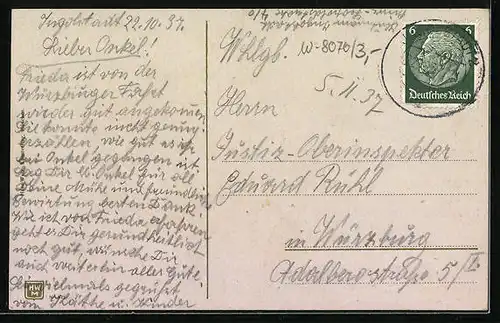 Ingolstadt 22.10.37.
Lieber Onkel!
Frieda ist von der
Würzburger Fahrt
wieder gut angekommen.
Sie konnte nicht genug
erzählen, wie gut es ihr
bei Onkel gegangen ist.
Sag Dir lb. Onkel für all
Deine Mühe und freundliche
Bewirtung besten Dank.
Wie ich von Frieda erfahren
geht es Dir gesundheitlich
noch gut, wünsche Dir
auch weiterhin alles Gute.
Sei vielmals gegrüßt
von Käthe u. Kinder
HW
M
Ingolstadt
Whlgb.
W-8070/3,-
5.11.37
Herrn
Justiz-Oberinspektor
Eduard Rühl
in Würzburg
Adalbero-straße 5/II
6 6
Deutsches Reich